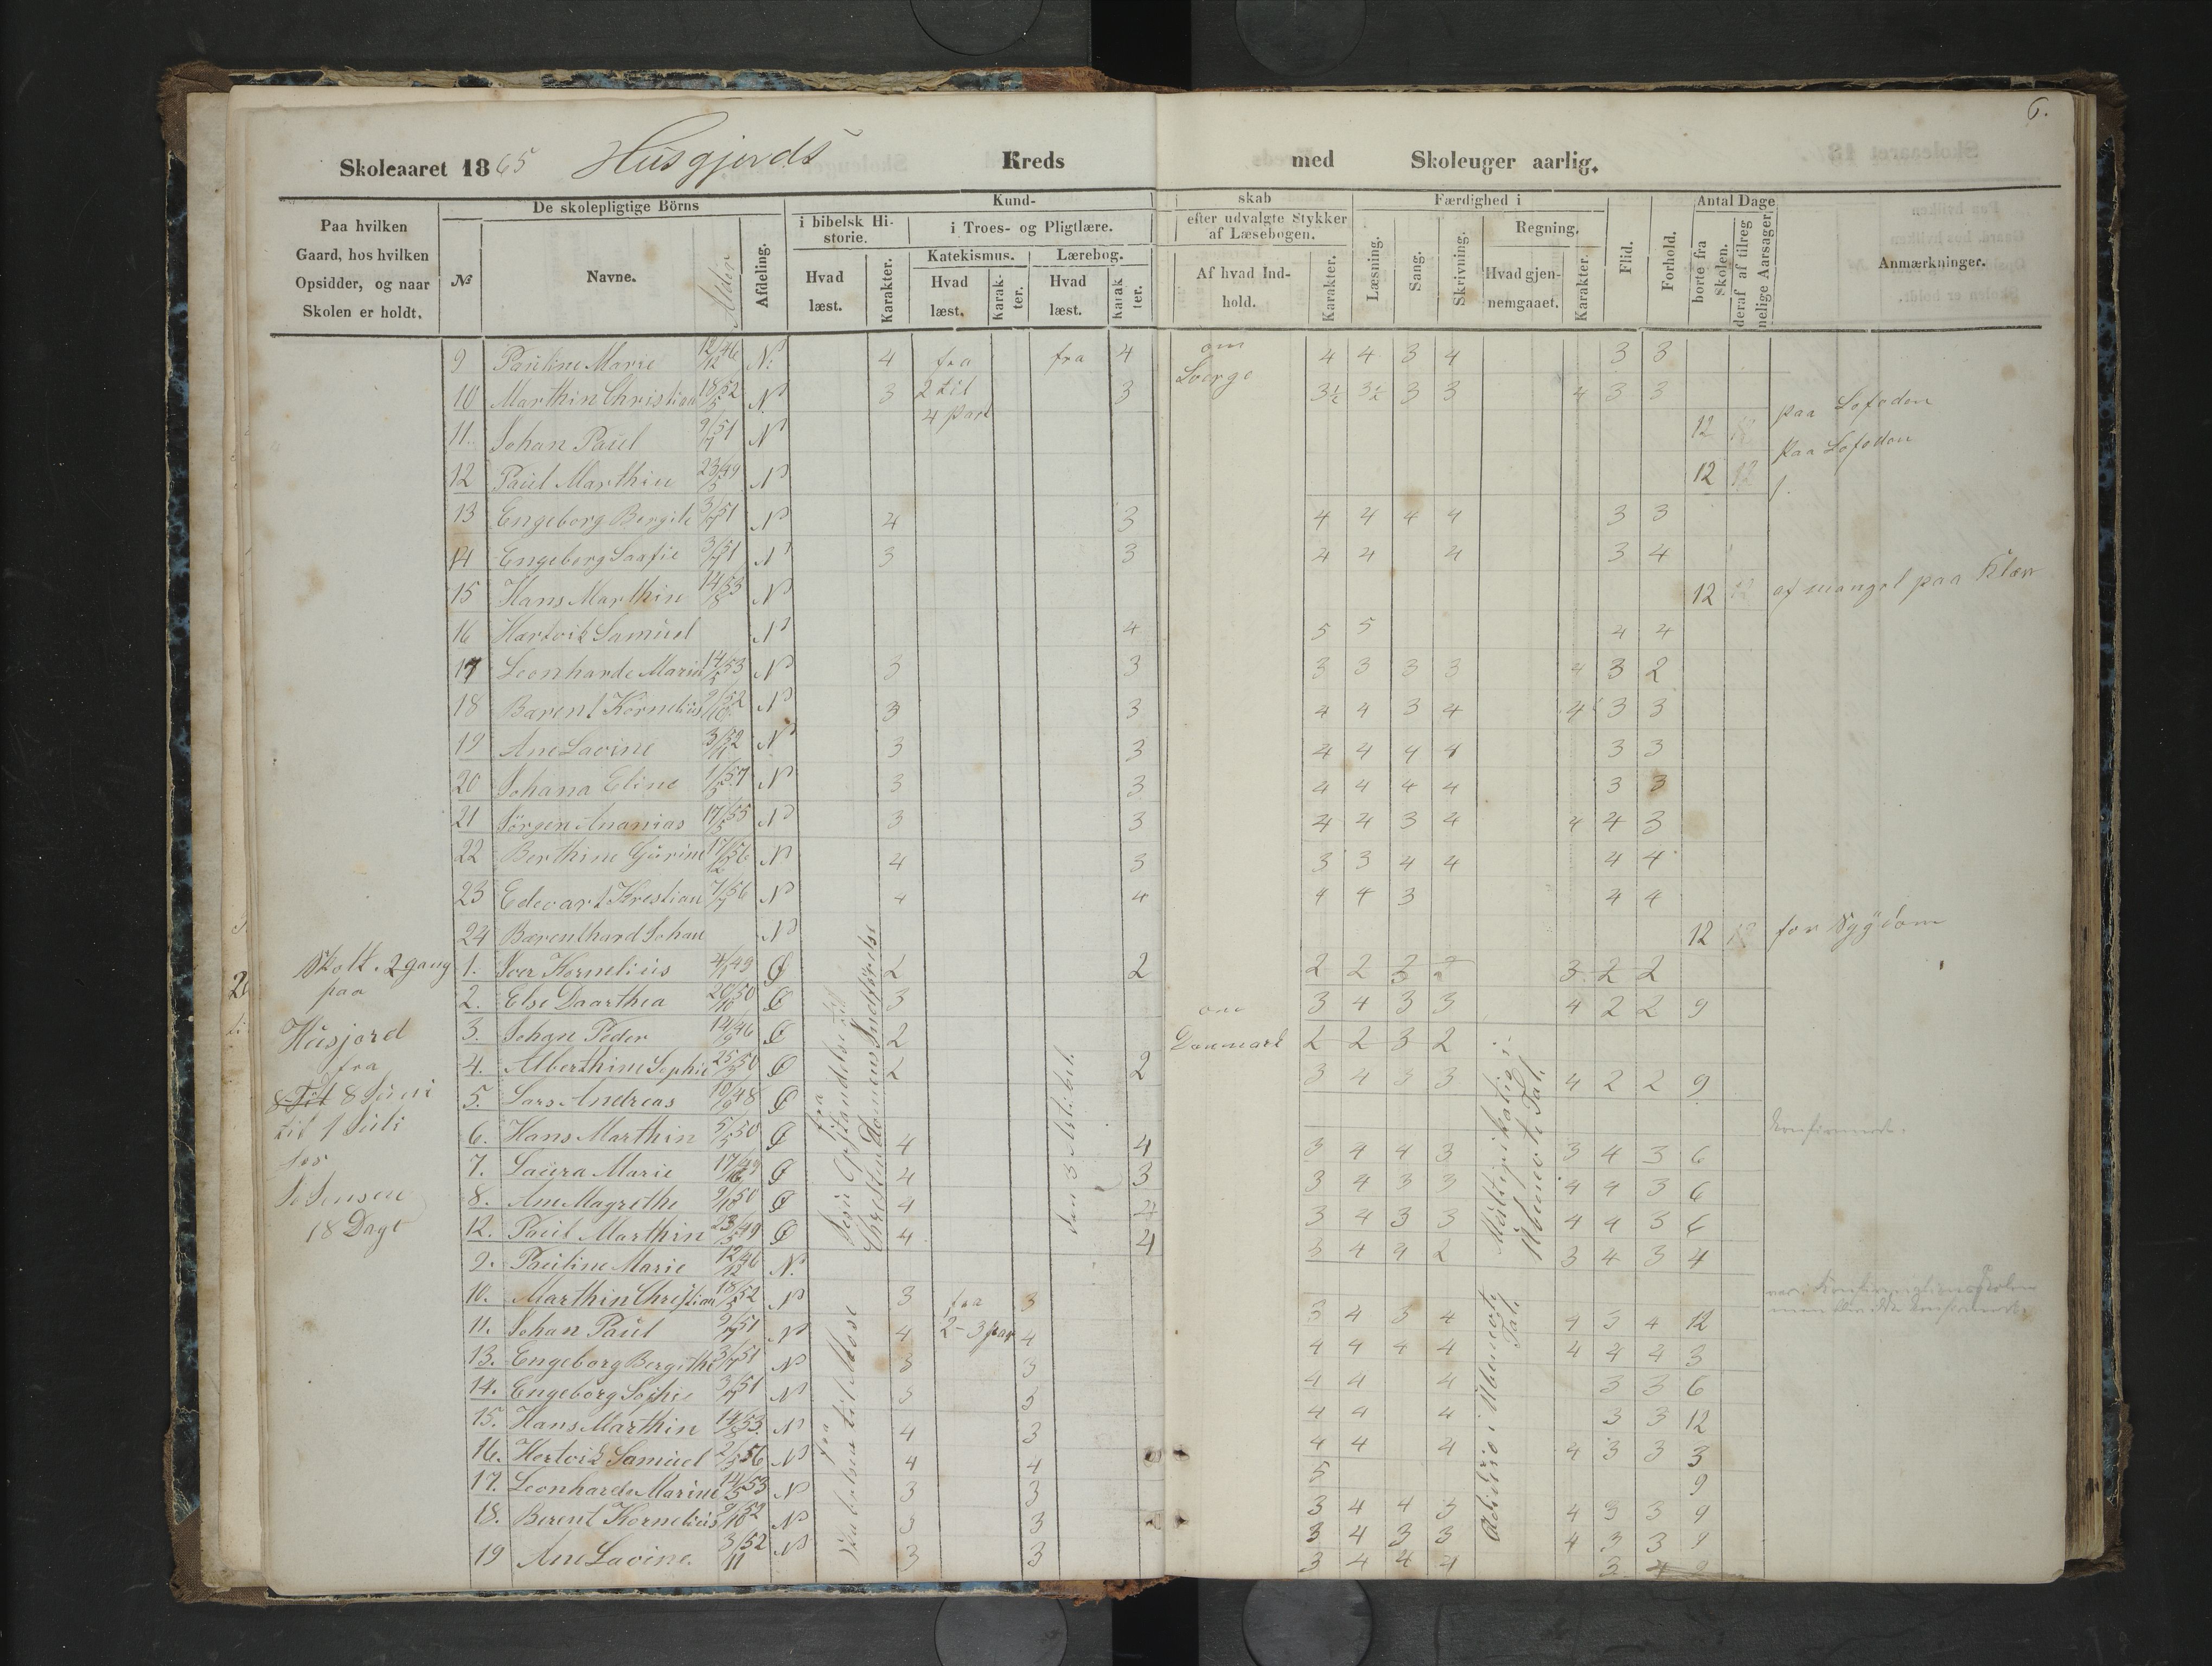 6.
Skoleaaret 1865 Husgjerds Kreds med Skoleuger aarlig.
Paa hvilken Gaard, hos hvilken Opsidder, og naar Skolen er holdt.
De skolepligtige Börns
№ Navne. Alder Afdeling.
Kundskab
i bibelsk Historie. Hvad læst. Karakter.
i Troes- og Pligtlære.
Katekismus. Hvad læst. Karakter.
Lærebog. Hvad læst. Karakter.
efter udvalgte Stykker af Læsebogen. Af hvad Indhold. Karakter.
Færdighed i
Læsning. Sang. Skrivning. Regning. Hvad gjennemgaaet. Karakter.
Flid. Forhold.
Antal Dage
borte fra Skolen. deraf af tilregnelige Aarsager.
Anmærkninger.
9 Pauline Marie 12/12 46 N. 4 fra fra 4 om 4 4 3 4 3 3
10 Marthin Christian 18/5 52 N 3 2 til 3 3½ 3½ 3 3 4 3 3
4 part
11. Johan Paul 9/7 51 N 12 12 paa Lofoden
12 Paul Marthin 23/5 49 N 12 12 paa Lofoden
13 Engeborg Bergite 3/7 51 N 4 3 4 4 4 4 3 3
14 Engeborg Saafie 3/7 51 N 3 3 4 4 4 3 4
15 Hans Marthin 14/8 53 N 12 12 af mangel paa Klær
16 Hartvik Samuel N 4 5 5 4 4
17 Leonharde Marie 14/5 53 N 3 3 3 3 3 3 4 3 2
18 Bærent Kornelius 9/10 52 N 3 3 4 4 3 4 4 3 3
19 Ane Lavine 3/11 52 N 3 3 4 4 4 4 3 3
20 Johana Eline 1/5 57 N 3 3 4 4 4 4 3 3
21 Jörgen Ananias 17/5 55 N 3 3 4 4 3 4 4 4 3
22 Berthine Gurine 17/12 56 N 4 3 3 3 4 4 4 4
23 Edevart Krestian 7/7 56 N 4 4 4 4 3 4 4
24 Bærenthard Johan N 12 12 for Sygdom
Skolt. 2 gang
paa
Husjord
fra
8 Juni
til 1 Juli
hos
J Jensen
18 Dage
1. Iver Kornelius 4/1 49 Ø 2 2 2 2 3 2 3 2 2
2. Else Daarthea 20/10 50 Ø 3 om 3 4 3 3 4 2 2 9
3. Johan Peder 14/9 46 Ø 2 Danmark 2 2 3 2
4. Alberthine Sophie 25/5 50 Ø 2 2 3 4 3 3 4 2 2 9
5. Lars Andreas 10/6 48 Ø Konfirmeret.
6. Hans Marthin 5/5 50 Ø 4 4 3 4 4 3 3 4 3 6
7. Laura Marie 17/12 49 Ø 4 3 3 4 3 3 4 4 3 6
8. Ane Magrethe 9/10 50 Ø 4 4 3 4 3 3 4 4 3 6
12. Paul Marthin 23/5 49 Ø 4 4 3 4 4 2 3 4 3 4
9. Pauline Marie 12/12 46 N.
10. Marthin Christian 18/5 52 N 3 fra 3 3 4 3 4 4 3 4 12
11. Johan Paul 9/7 51 N 4 2-3 par 4 4 4 4 4 4 4 4 3
13. Engeborg Bergithe 3/7 51 N 3 3 4 4 4 3 3 6
14. Engeborg Sophie 3/7 51 N 3 3 4 4 4 3 3 12
15. Hans Marthin 14/8 53. N 4 3 4 4 4 4 3 3 3
16. Hertvik Samuel 2/5 56 N 4 4 5 9
17. Leonharde Marine 14/5 53 N 3 3 3 4 4 3 4 3 3 9
18. Berent Kornelius 9/10 52 N 3 3 3 4 3 3 4 3 3 9
19 Ane Lavine. 3/11 52 N 3 3 3 4 4 4 3
fra Jesu Opstandelse til Christendomens Indførelse
den 3 Art.
Multiplikation i Ubenevnte Tal.
fra til Mose
Addition i Ubenevnte Tal.